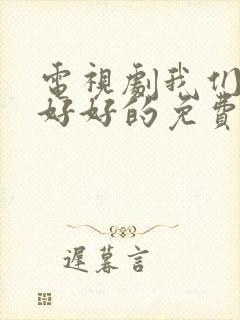 電視劇我们
好好的免費
遲暮言